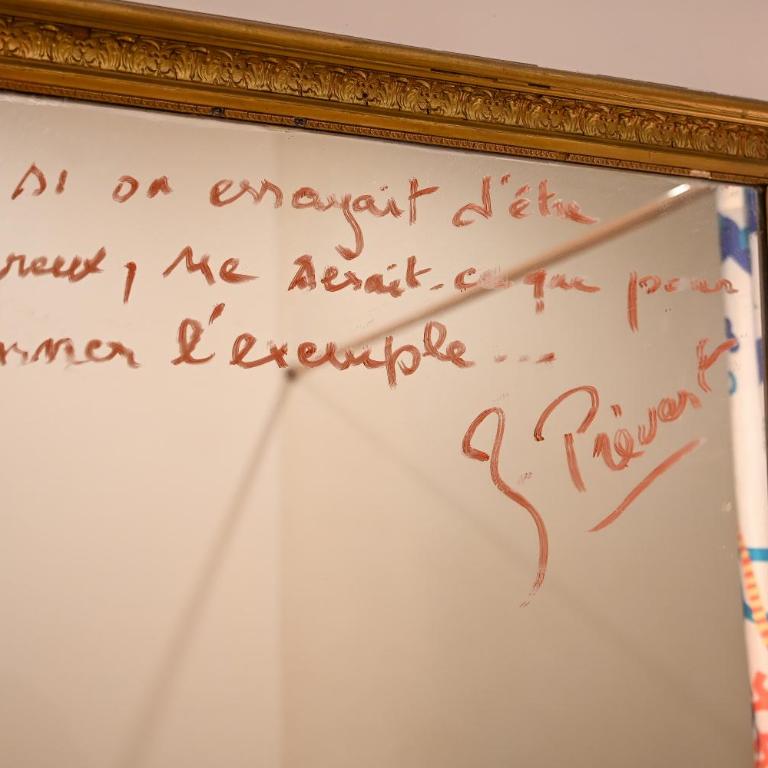 si on essayait d'être
reux, ne serait-ce que pour
nner l'exemple...
J. Prévert